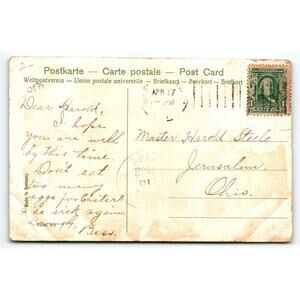 Postkarte - Carte postale - Post Card
Weltpostverein - Union postale universelle - Briefkaart - Brevkort - Brefkort
APR 17
PM
Dear Harold,
I hope
you are well
by this time.
Don't eat
too many
eggs for Easter
be sick again
Bess.
Master Harold Steele
Jerusalem,
Ohio.
Made in Germany